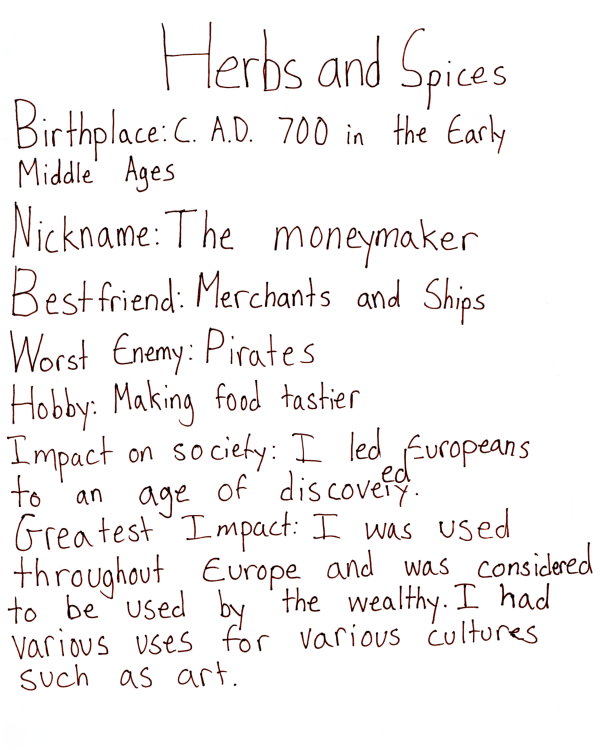 Herbs and Spices
Birthplace: C. A.D. 700 in the Early
Middle Ages
Nickname: The moneymaker
Best friend: Merchants and Ships
Worst Enemy: Pirates
Hobby: Making food tastier
Impact on society: I led Europeans
ed
to an age of discovery.
Greatest Impact: I was used
throughout Europe and was considered
to be used by the wealthy. I had
various uses for various cultures
such as art.